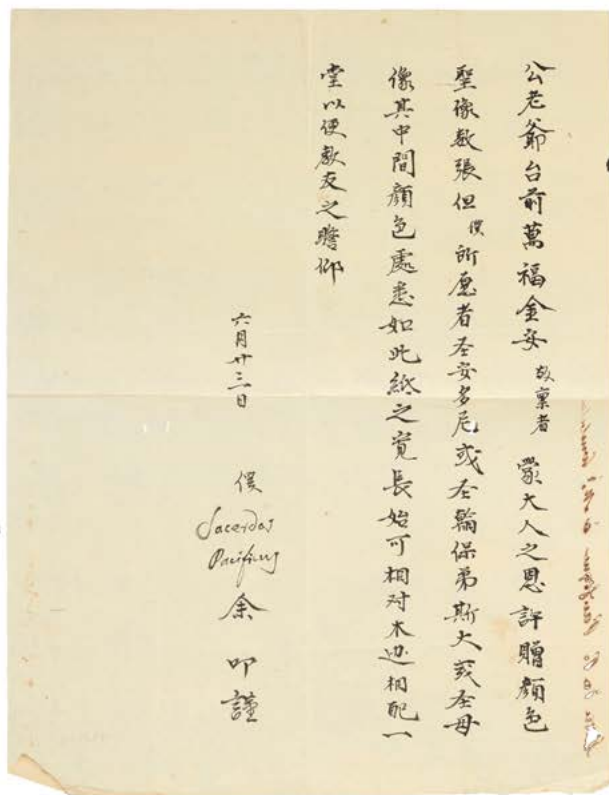 公老爺台前萬福金安 敬稟者 蒙大人之恩許贈顏色
聖像數張但僕所愿者圣安多尼或圣翰保弟斯大或圣母
像其中間顏色處悉如此紙之寛長始可相对木边相配一
堂以便教友之瞻仰
六月廿三日
僕
Sacerdos
Pacificus
余 叩謹